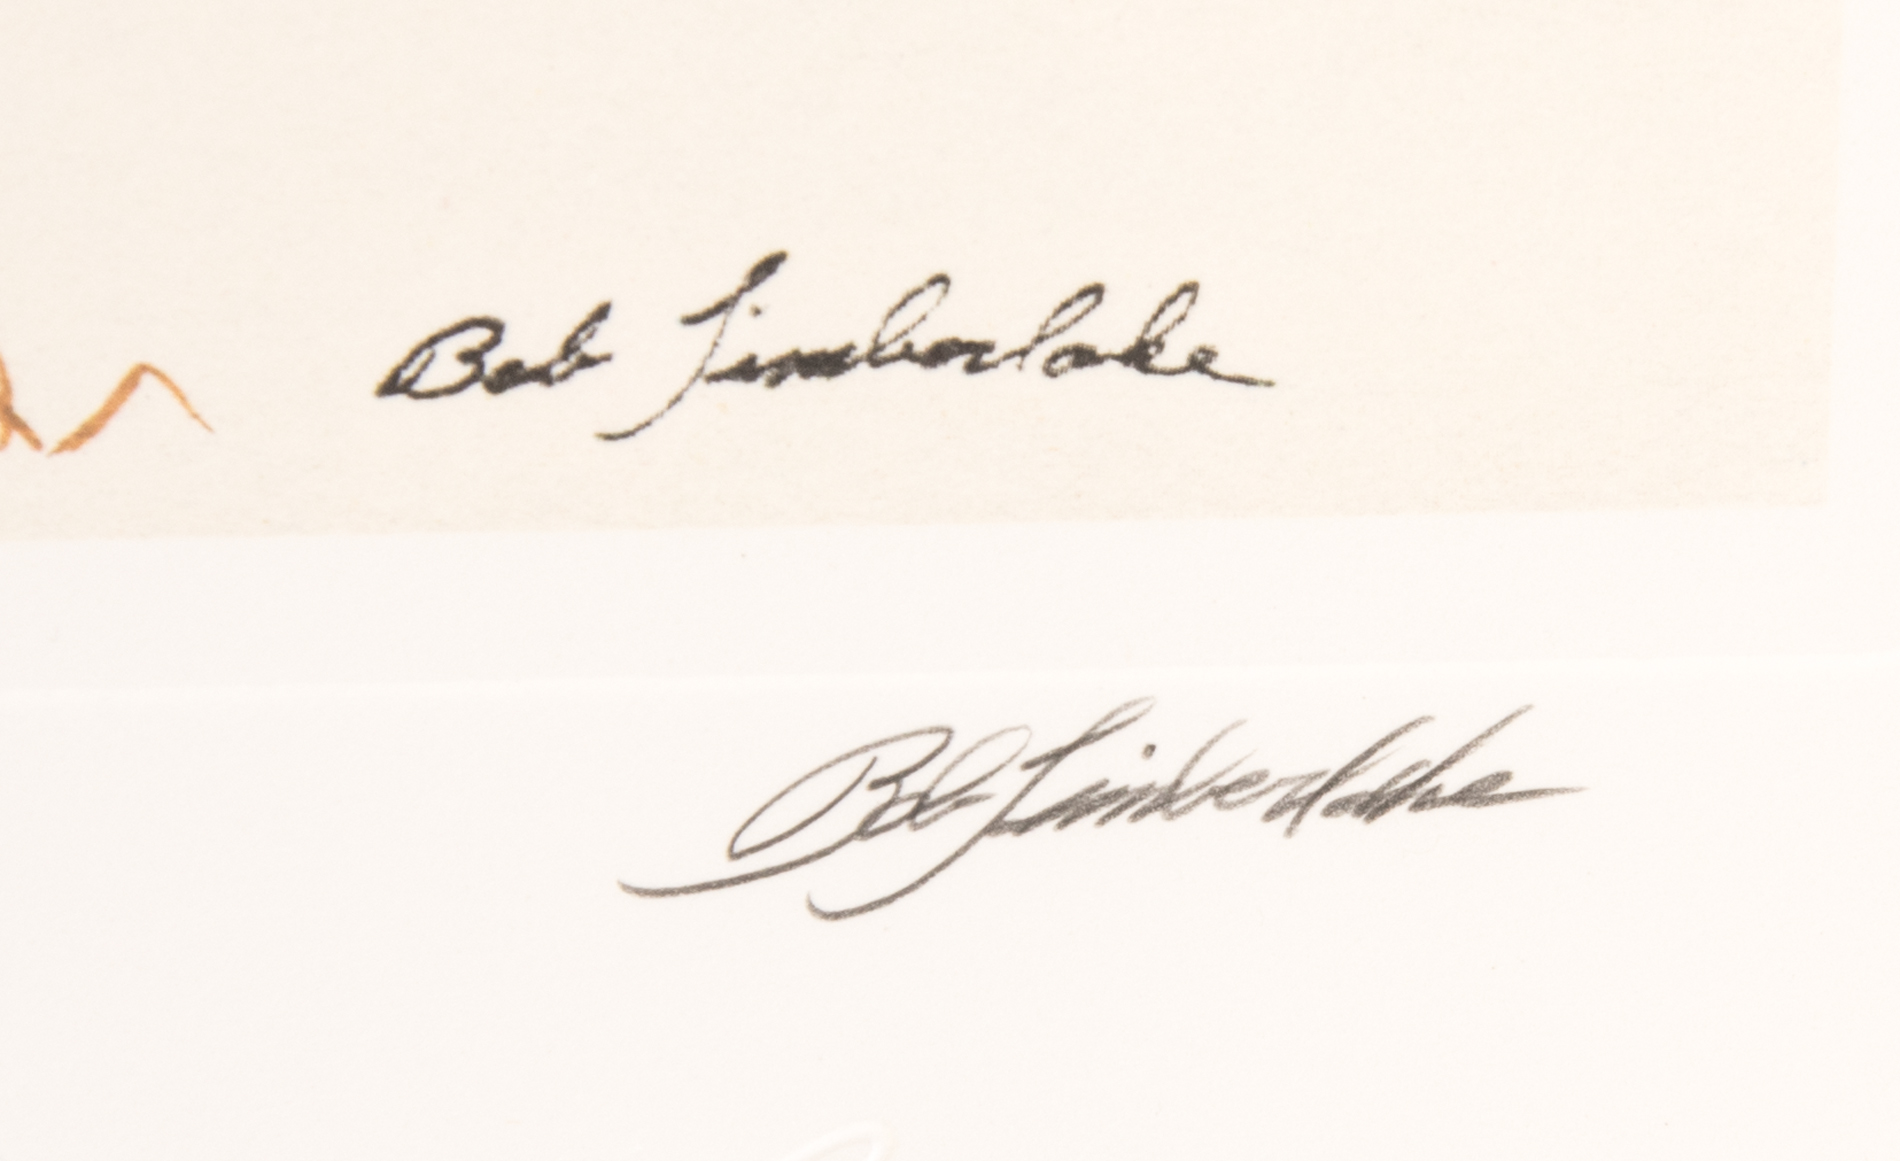 Bob Timberlake
Bob Timberlake